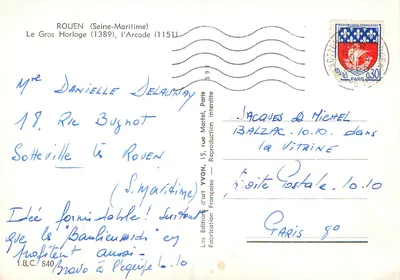 ROUEN (Seine-Maritime)
Le Gros Horloge (1389), l'Arcade (1511)
Mme DANIELLE DELAUNAY
18, Rue Bugnot
Sotteville lès ROUEN
(S. Maritime)
Idée formidable! surtout
que les "Banlieusards" en
profitent aussi-
Bravo à l'équipe! 10.10
I.B.C 840
Les Editions d'art YVON, 15, rue Martel, Paris
Fabrication Française - Reproduction interdite
RÉPUBLIQUE FRANÇAISE
0,30
PARIS
JACQUES & MICHEL
BALZAC. 10.10. dans
la VITRINE
Boite Postale. 10.10
PARIS 8º